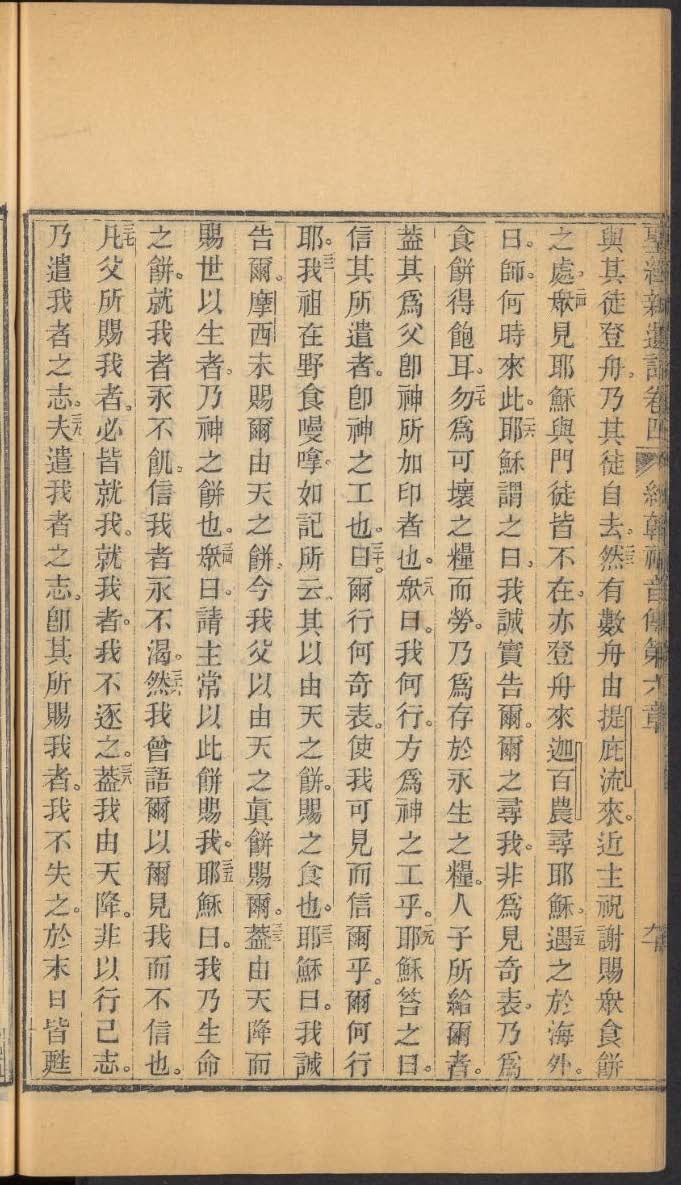 聖經新遺詔卷四 約翰福音傳第六章 九
與其徒登舟。乃其徒自去。二三然有數舟由提庇流來。近主祝謝賜眾食餅
之處。二四眾見耶穌與門徒皆不在。亦登舟來迦百農尋耶穌。二五遇之於海外。
曰。師。何時來此。二六耶穌謂之曰。我誠實告爾。爾之尋我。非為見奇表。乃為
食餅得飽耳。二七勿為可壞之糧而勞。乃為存於永生之糧。人子所給爾者。
蓋其為父即神所加印者也。二八眾曰。我何行。方為神之工乎。二九耶穌答之曰。
信其所遣者。即神之工也。三十曰。爾行何奇表。使我可見而信爾乎。爾何行
耶。三一我祖在野食嘜嗱。如記所云。其以由天之餅。賜之食也。三二耶穌曰。我誠
告爾。摩西未賜爾由天之餅。今我父以由天之眞餅賜爾。三三蓋由天降而
賜世以生者。乃神之餅也。三四眾曰。請主常以此餅賜我。三五耶穌曰。我乃生命
之餅。就我者永不飢。信我者永不渴。三六然我曾語爾以爾見我而不信也。
三七凡父所賜我者。必皆就我。就我者。我不逐之。三八蓋我由天降。非以行己志。
乃遣我者之志。三九夫遣我者之志。即其所賜我者。我不失之。於末日皆甦